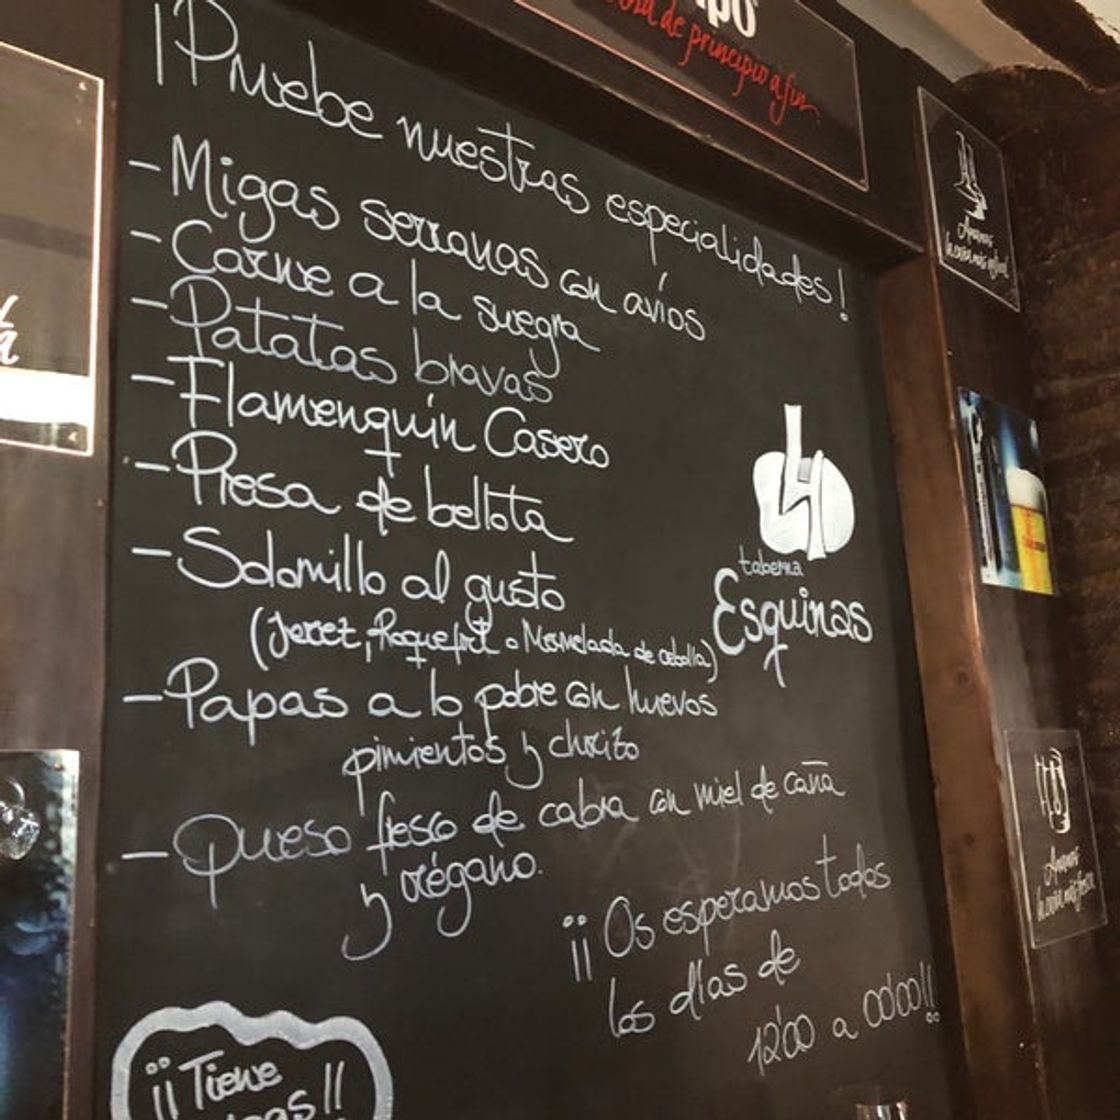 de principio a fin
¡Pruebe nuestras especialidades!
- Migas serranas con avíos
- Carne a la suegra
- Patatas bravas
- Flamenquín Casero
- Presa de bellota
- Solomillo al gusto
(Jerez, Roquefort o Mermelada de cebolla)
- Papas a lo pobre con huevos
pimientos y chorizo
- Queso fresco de cabra con miel de caña
y orégano.
taberna
Esquinas
¡¡Os esperamos todos
los días de
12'00 a 00'00!!
¡¡Tiene
!!
Amamos
Amamos